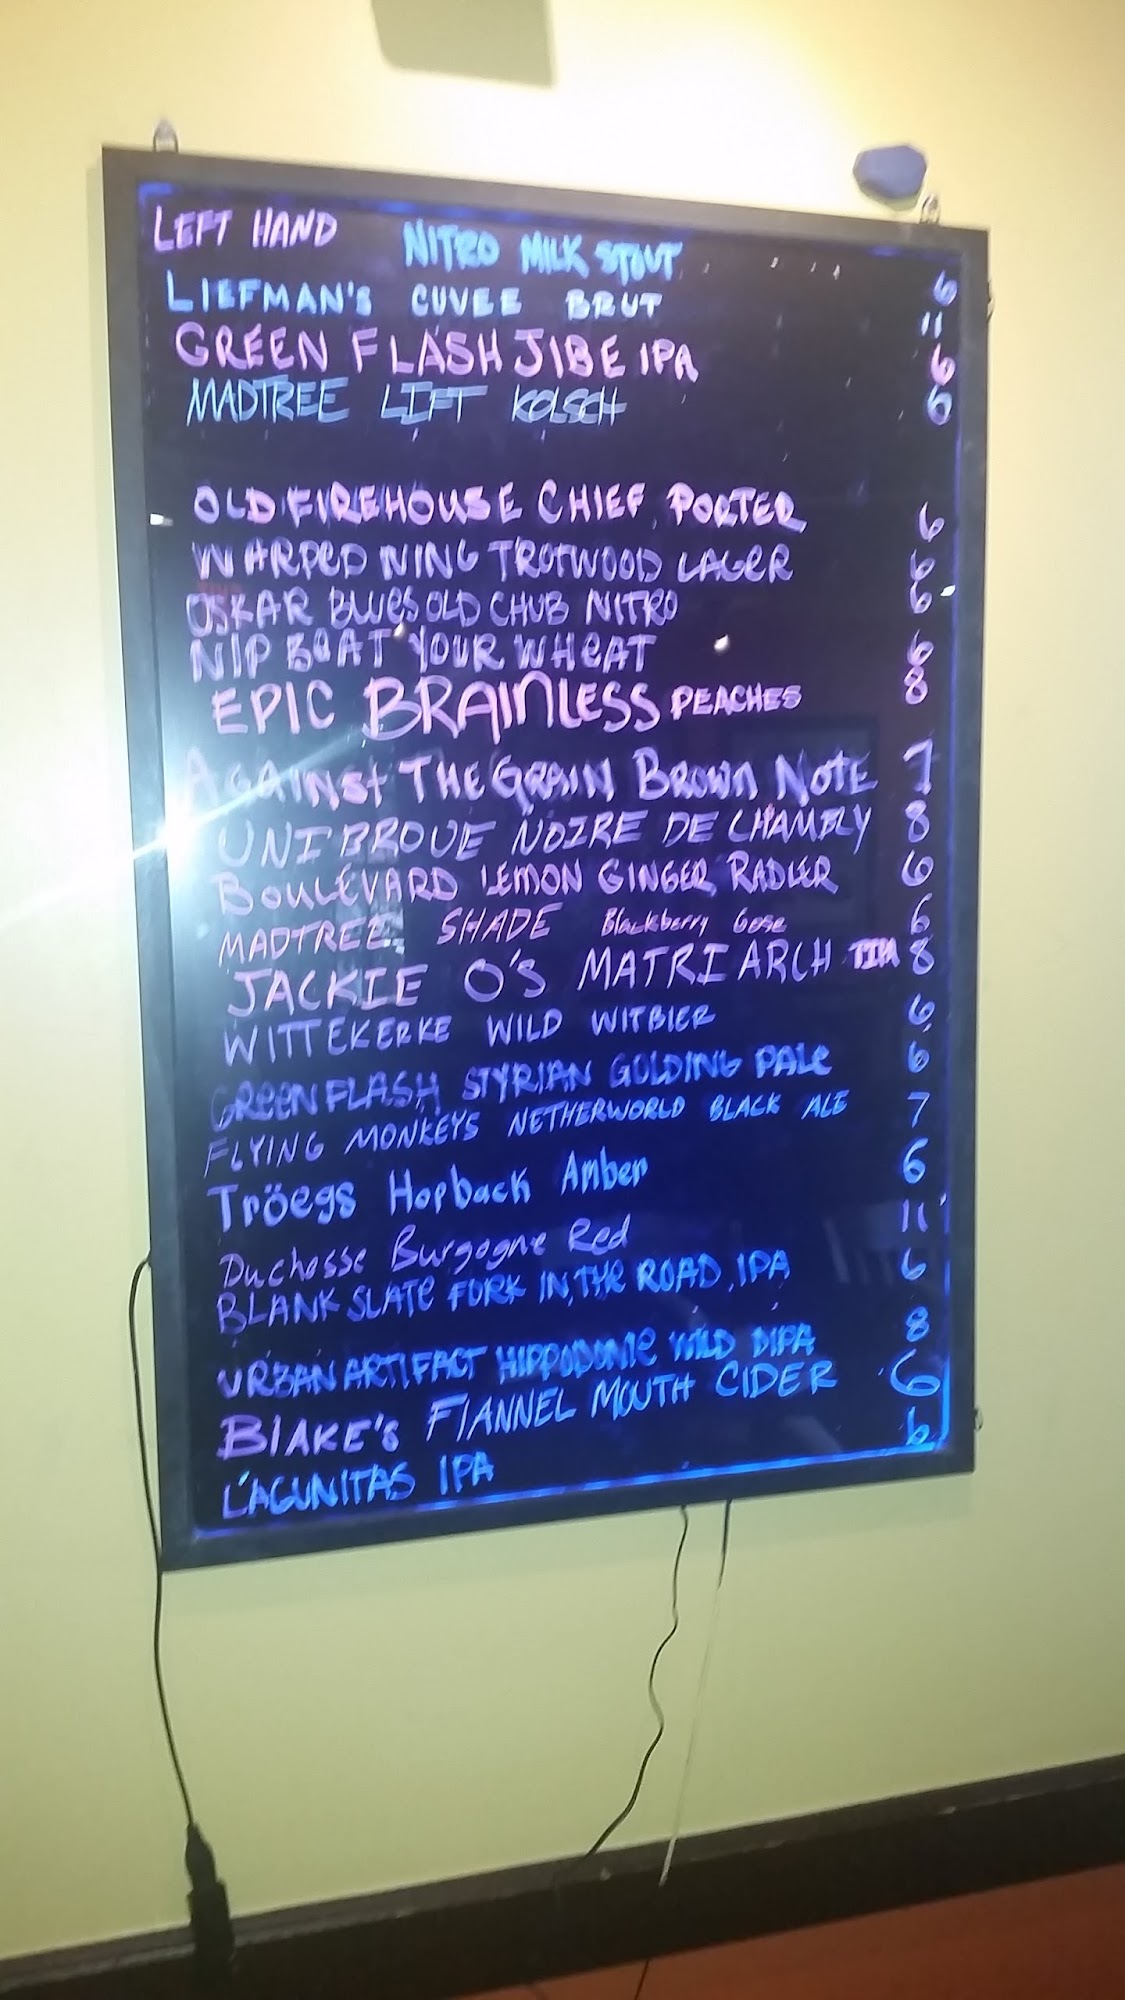 LEFT HAND NITRO MILK STOUT 6
LIEFMAN'S CUVEE BRUT 11
GREEN FLASH JIBE IPA 6
MADTREE LIFT KOLSCH 6
OLD FIREHOUSE CHIEF PORTER 6
WARPED WING TROTWOOD LAGER 6
OSKAR BLUES OLD CHUB NITRO 6
NIP BEAT YOUR WHEAT 6
EPIC BRAINLESS PEACHES 8
AGAINST THE GRAIN BROWN NOTE 7
UNIBROUE NOIRE DE CHAMBLY 8
BOULEVARD LEMON GINGER RADLER 6
MADTREE SHADE Blackberry Gose 6
JACKIE O'S MATRIARCH 8
WITTEKERKE WILD WITBIER 6
GREEN FLASH STYRIAN GOLDING PALE 6
FLYING MONKEYS NETHERWORLD BLACK ALE 7
Tröegs Hopback Amber 6
Duchesse Burgogne Red 11
BLANK SLATE FORK IN THE ROAD IPA 6
URBAN ARTIFACT HIPPODOME WILD DIPA 8
BLAKE'S FLANNEL MOUTH CIDER 6
LAGUNITAS IPA 6